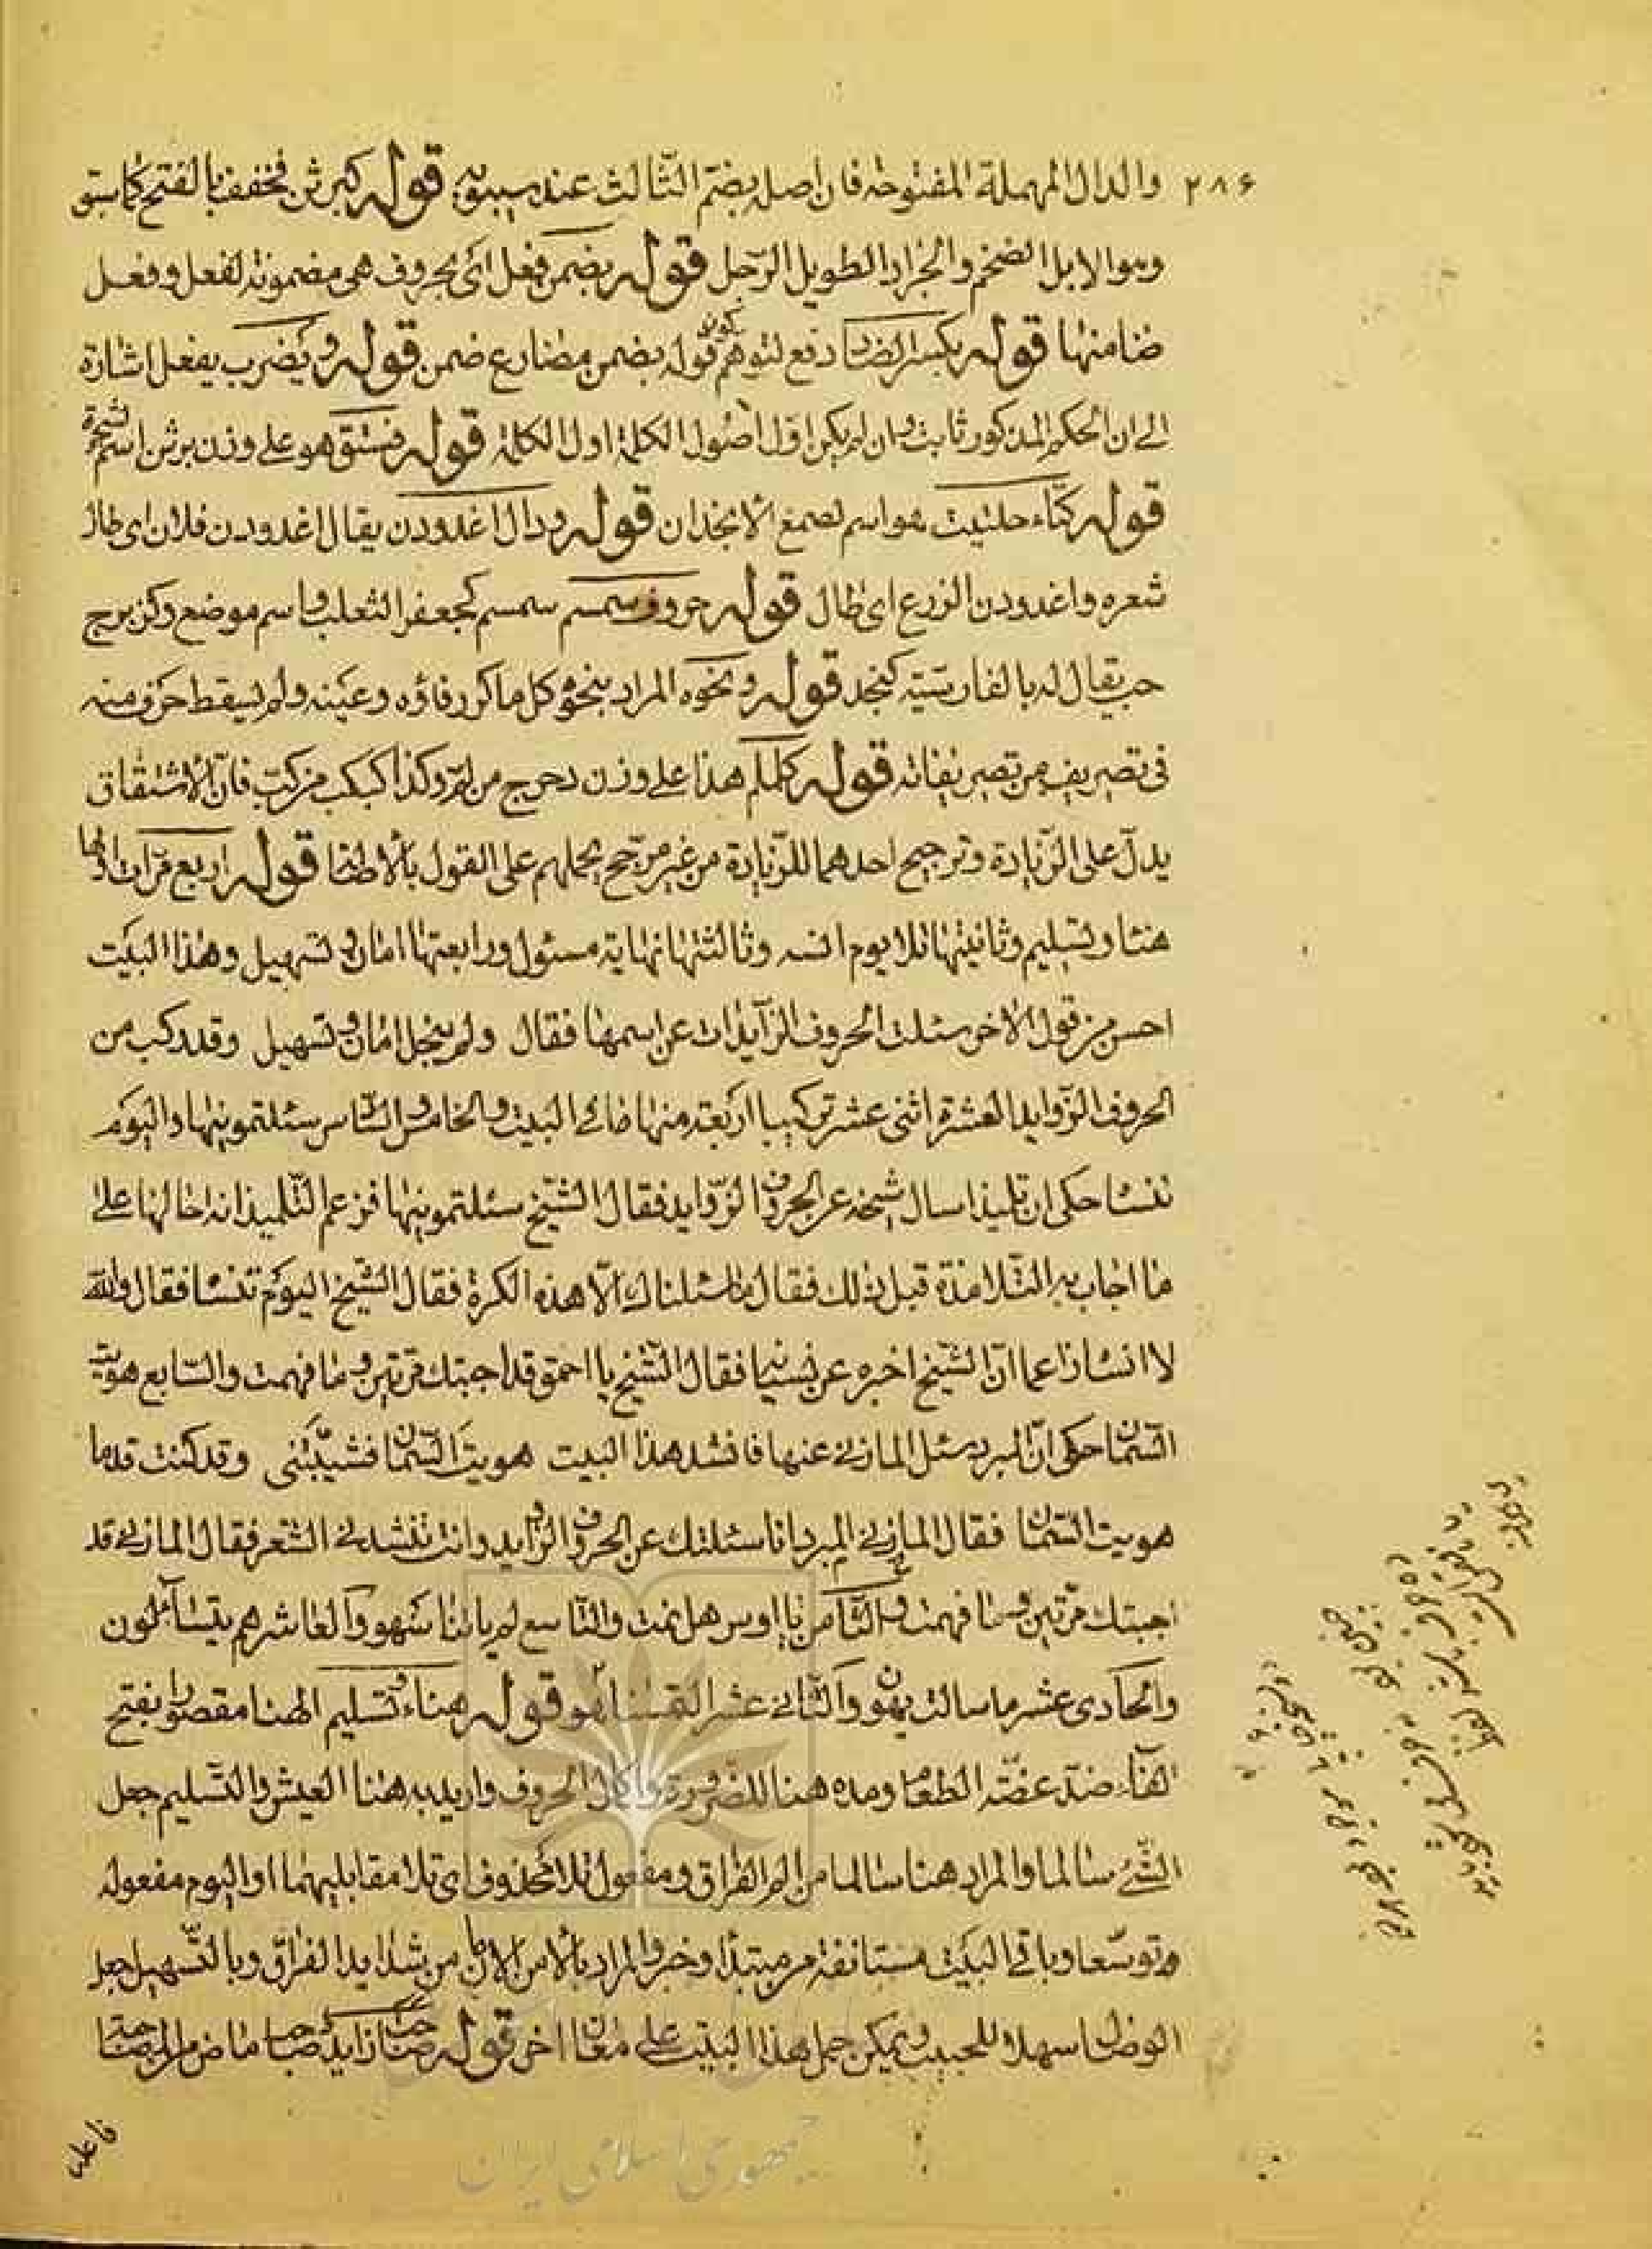 ٢٨۶ والدال المهملة المفتوحة فان اصله بضم الثالث عند سيبويه قوله كبرثن فخفف بالفتح كما سبق
وهو الابل الضخم والجراد الطويل الرحل قوله بضمن فعل اى بحروف هى مضمونة لفعل وفعل
ضامنها قوله بكسر الضاد دفع لتوهم كون قوله بضمن مضارع ضمن قوله ويضرب يفعل اشارة
الى ان الحكم المذكور ثابت وان لم يكن اول اصول الكلمة اول الكلمة قوله فستق هو على وزن برثن اسم شجرة
قوله كتاء حلتيت هو اسم لصمغ الانجذان قوله ودال اغدودن يقال اغدودن فلان اى طال
شعره واغدودن الزرع اى طال قوله حروف سمسم سمسم كجعفر الثعلب واسم موضع وكزبرج
حب يقال له بالفارسية كنجد قوله ونحوه المراد بنحوه كل ما كرر فاؤه وعينه ولم يسقط حرف منه
فى تصريف من تصريفاته قوله كلملم هذا على وزن دحرج من لم وكذا كبكب من كب فان الاشتقاق
يدل على الزيادة وترجيح احدهما للزيادة من غير مرجح يحملهم على القول باصالتهما قوله اربع مرات اولها
هناء وتسليم وثانيتها تلا يوم انسه وثالثتها نهاية مسئول ورابعتها امان وتسهيل وهذا البيت
احسن من قول الاخر سئلت الحروف الزآيدات عن اسمها فقال ولم يبخل امان وتسهيل وقد ركب من
الحروف الزوايد العشرة اثنى عشر تركيبا اربعة منها ما فى البيت والخامس والسادس سئلتمونيها واليوم
تنسا حكى ان تلميذا سال شيخه عن الحروف الزوايد فقال الشيخ سئلتمونيها فزعم التلميذ انه احالها على
ما اجاب به التلامذة قبل ذلك فقال ما سئلناك الا هذه الكرة فقال الشيخ اليوم تنسا فقال والله
لا انسا زاعما ان الشيخ اخبره عن نسيانها فقال الشيخ يا احمق قد اجبتك مرتين وما فهمت والسابع هويت
السمان حكى ان المبرد سئل المازنى عنها فانشد هذا البيت هويت السمان فشيبننى وقد كنت قدما
هويت السمانا فقال المازنى المبرد انا سئلتك عن الحروف الزوايد وانت تنشدنى الشعر فقال المازنى قد
اجبتك مرتين وما فهمت والثامن يا اوس هل نمت والتاسع لم ياتنا سهو والعاشر هم يتسآءلون
والحادى عشر ما سالت يهون والثانى عشر التمسنا هو قوله هناء وتسليم الهنا مقصورا بفتح
الهآء ضد غصة الطعام ومده هنا للضرورة واكمال الحروف واريد به هنا العيش والتسليم جعل
الشئ سالما والمراد هنا سالما من الم الفراق ومفعول تلا محذوف اى تلا مقابليهما او اليوم مفعوله
توسعا وباقى البيت مستانفة من مبتدا وخبر والمراد بالامن الامان من شدايد الفراق وبالتسهيل جعل
الوصل سهلا للحبيب ويمكن حمل هذا البيت على معان اخر قوله
جمهوری اسلامی ایران